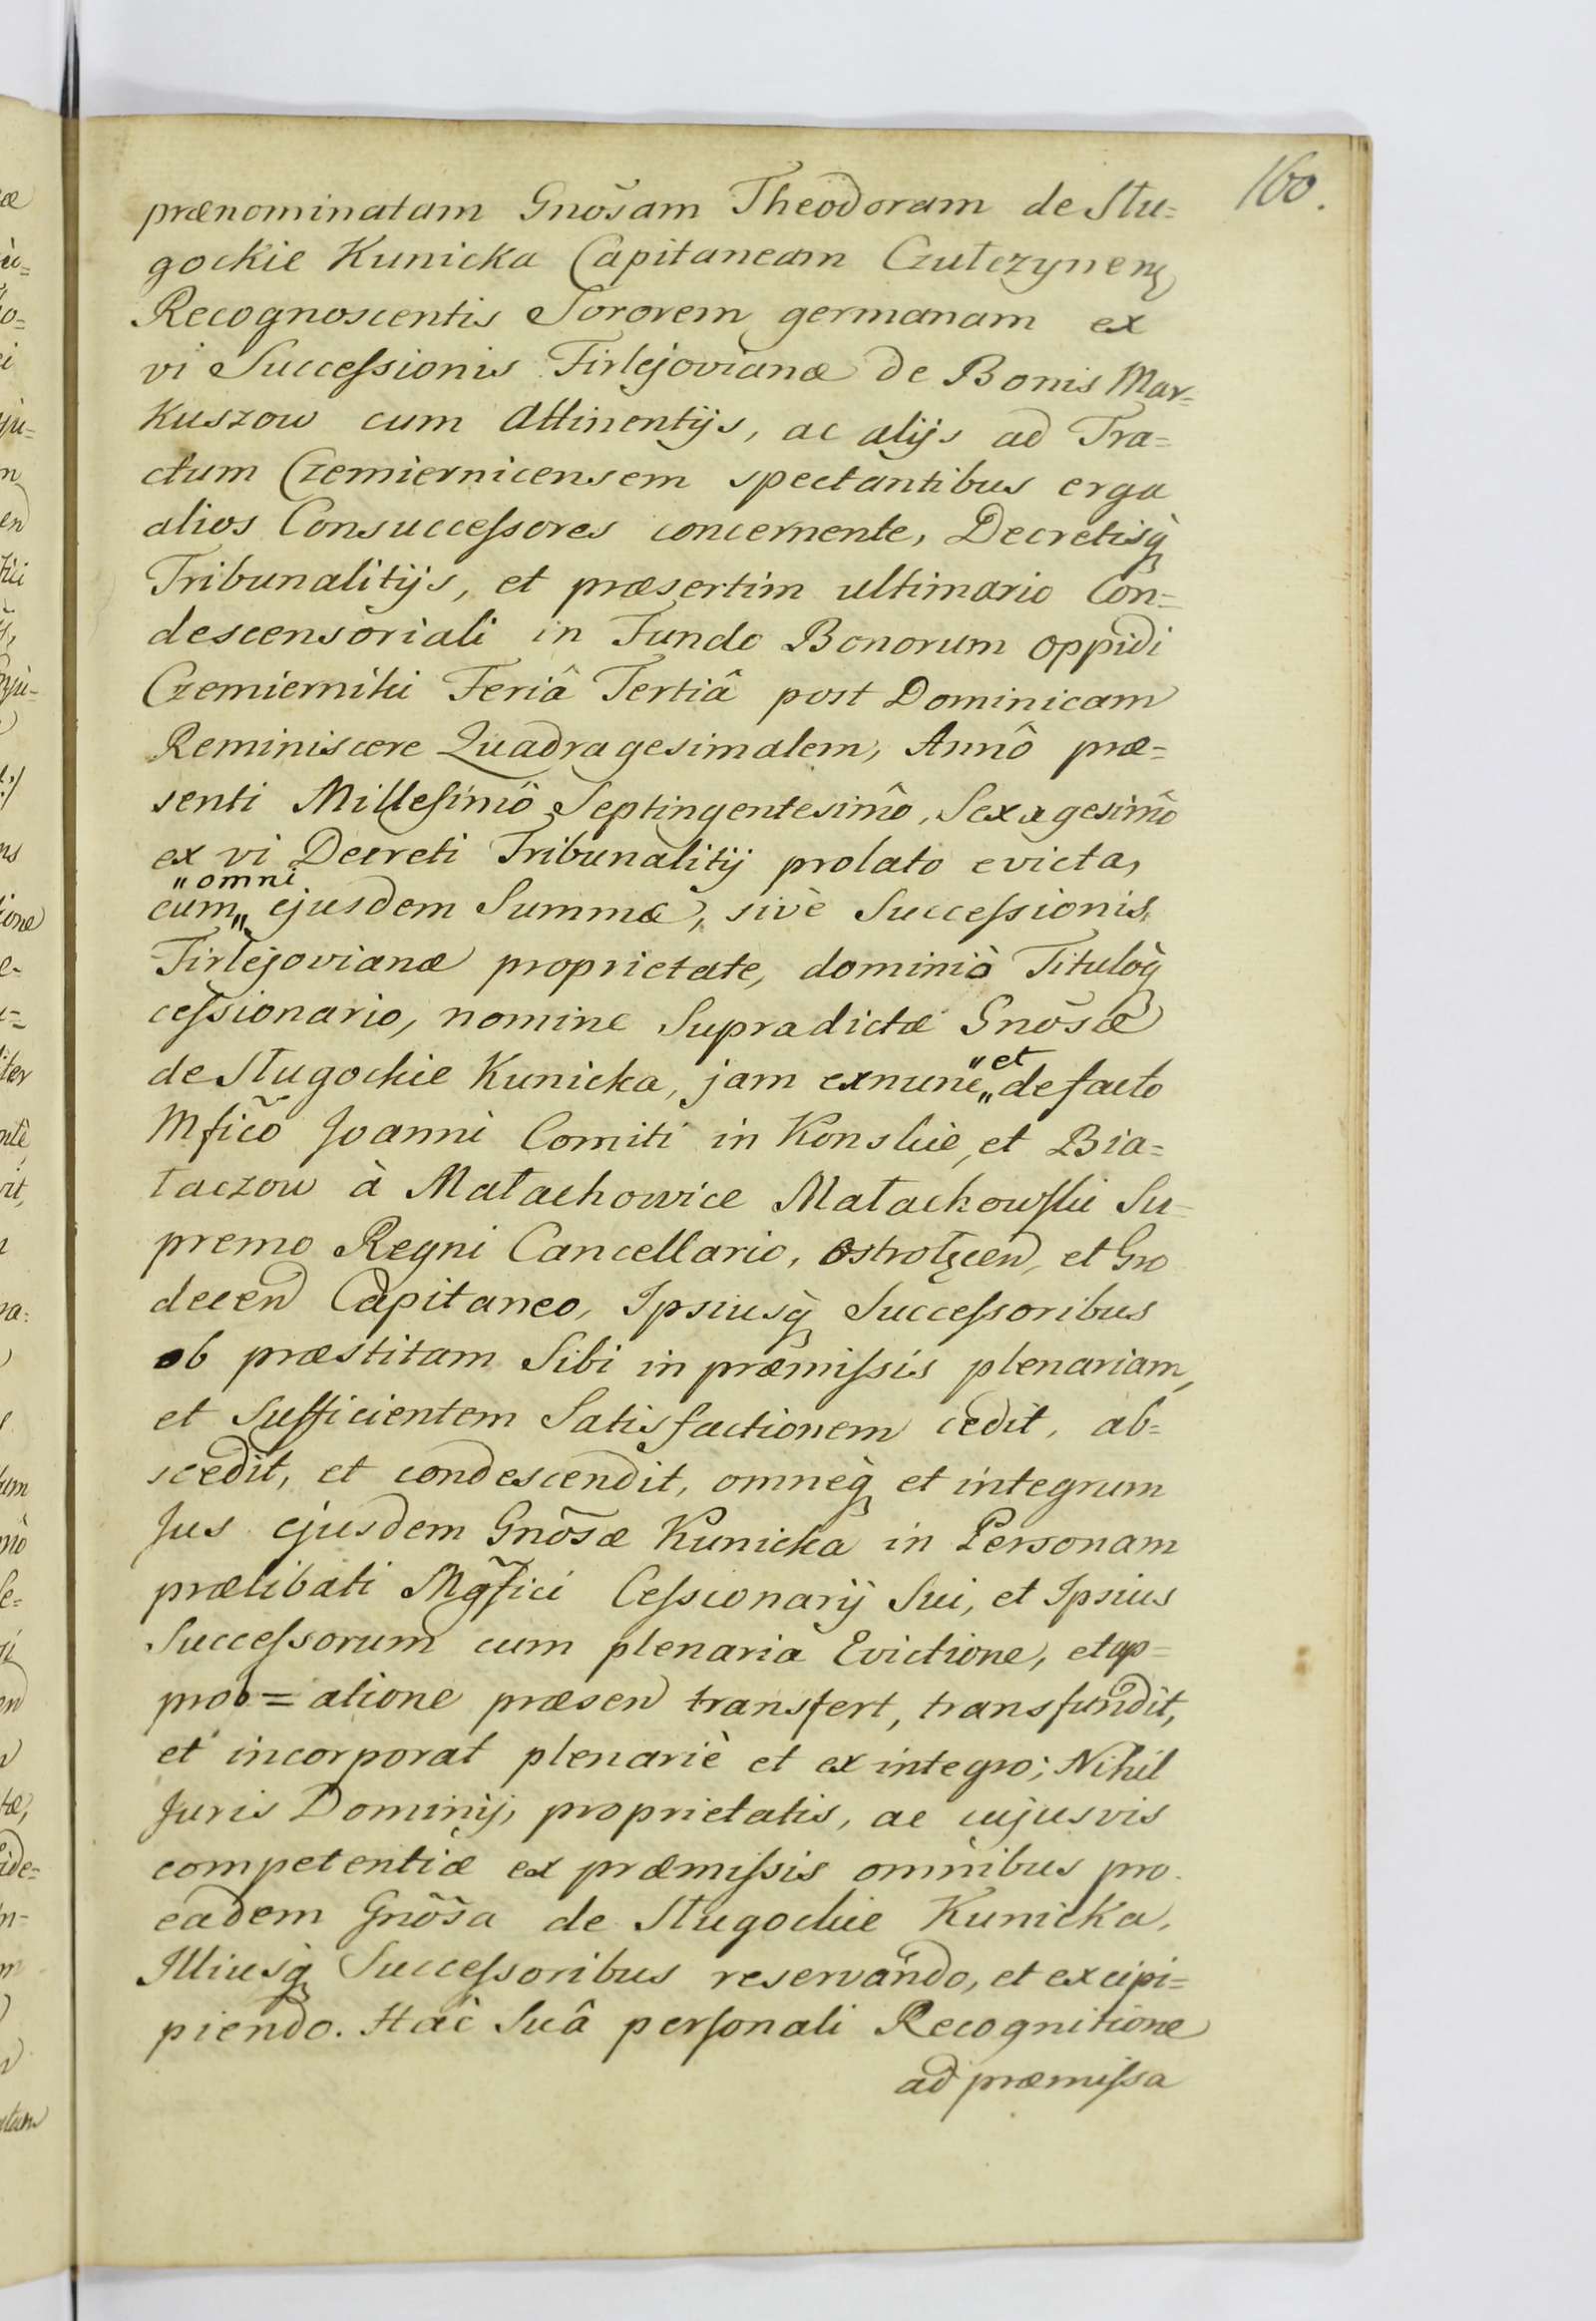 160.
prænominatam Gnõsam Theodoram de Słu=
gockie Kunicka Capitaneam Czułczynen
Recognoscentis Sororem germanam ex
vi Successionis Firlejovianæ de Bonis Mar=
Kuszow cum Attinentijs, ac alijs ad Tra=
ctum Czemiernicensem spectantibus erga
alios Consuccessores concernente, Decretisq̀
Tribunalitijs, et præsertim ultimario Con=
descensoriali in Fundo Bonorum oppidi
Czemierniki Feriâ Tertiâ post Dominicam
Reminiscere Quadragesimalem, Annô præ=
senti Millesimô Septingentesimô, Sexagesimô
ex vi Decreti Tribunalitij prolato evicta,
"omni
cum„ ejusdem Summæ, sivè Successionis,
Firlejovianæ proprietate, dominiò Titulòq̀
cessionario, nomine Supradictæ Gnõsæ
"et
de Sługockie Kunicka, jam exnunc„ defacto
Mficõ Joanni Comiti in Konskie, et Bia=
łaczow à Małachowice Małachowskie Su=
premo Regni Cancellario, Ostrołęcen, et Gro
decen Capitaneo, Ipsiusq̀ Successoribus
ob præstitam Sibi in præmissis plenariam,
et Sufficientem Satisfactionem cedit, ab=
scedit, et condescendit, omneq̀ et integrum
Jus ejusdem Gnõsæ Kunicka in Personam
prælibati Mgfici Cessionarij Sui, et Ipsius
Successorum cum plenaria Evictione, et ap=
prob=atione præsen transfert, transfundit,
et incorporat plenariè et ex integro; Nihil
Juris Dominij, proprietatis, ac cujusvis
competentiæ ex præmissis omnibus pro
eadem Gnõsa de Sługockie Kunicka,
Illiusq̀ Successoribus reservando, et excipi=
piendo. Hac Suâ personali Recognitione
ad præmissa